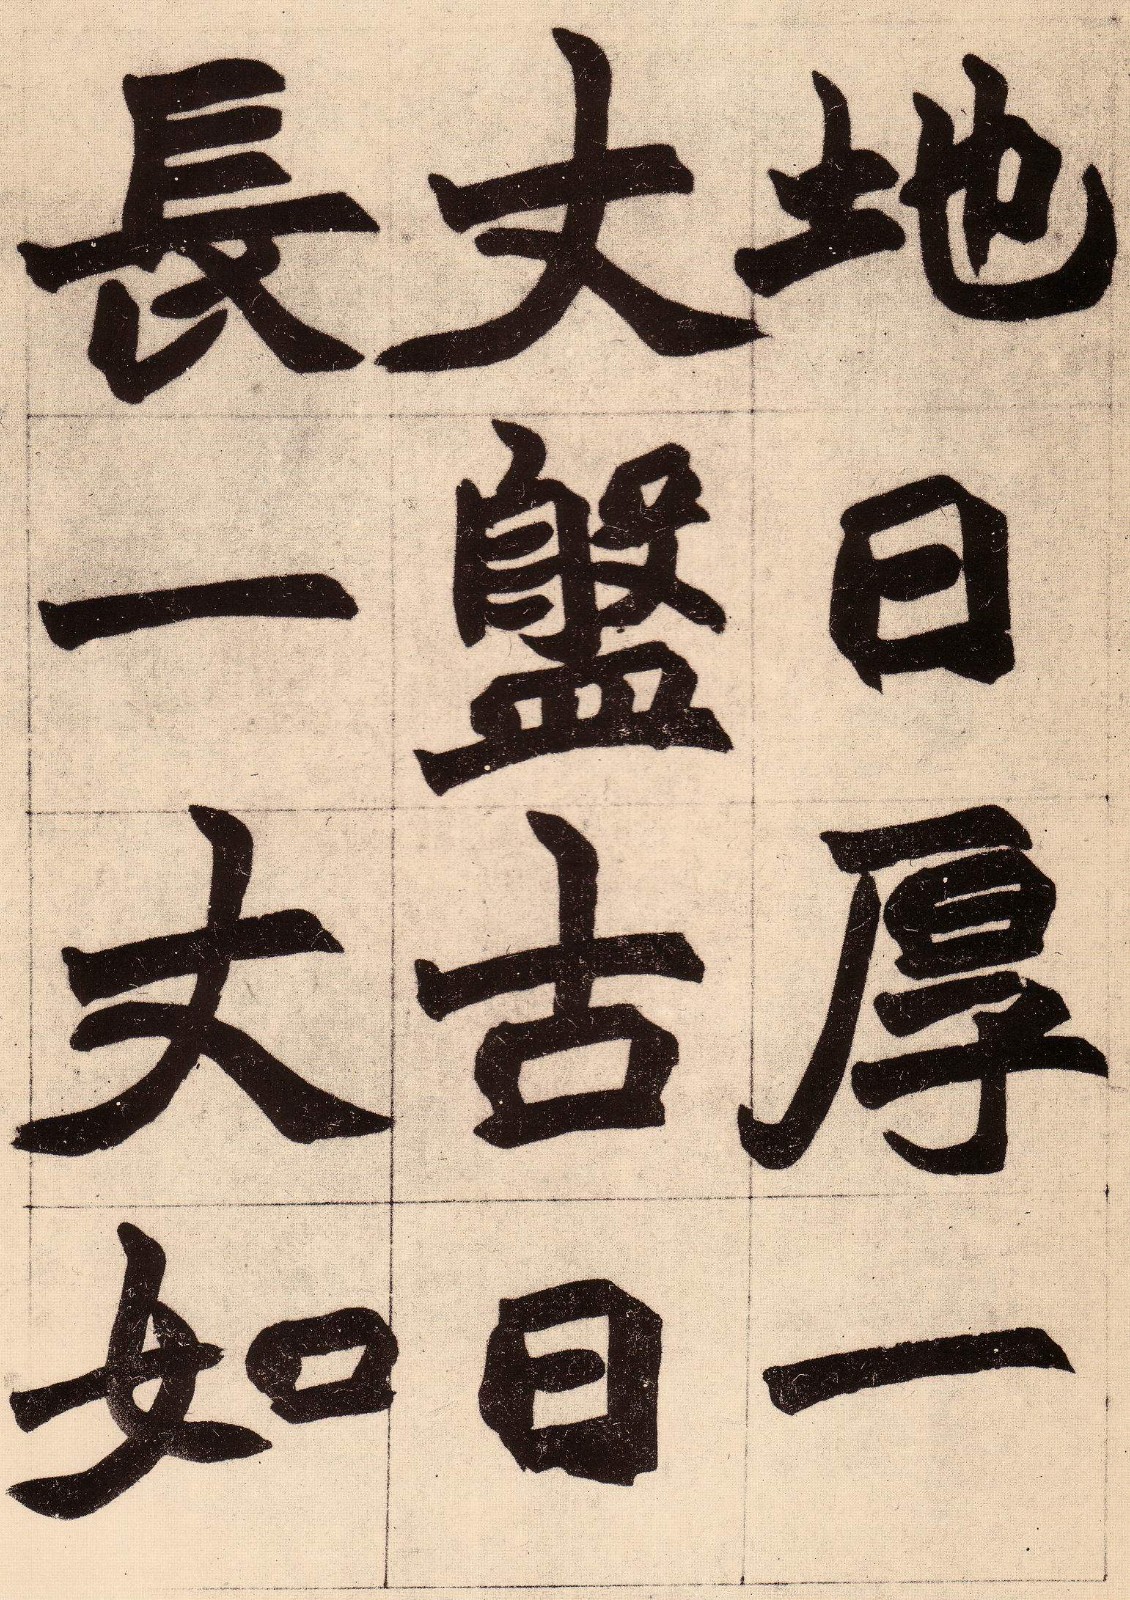 地日厚一
丈盤古日
長一丈如